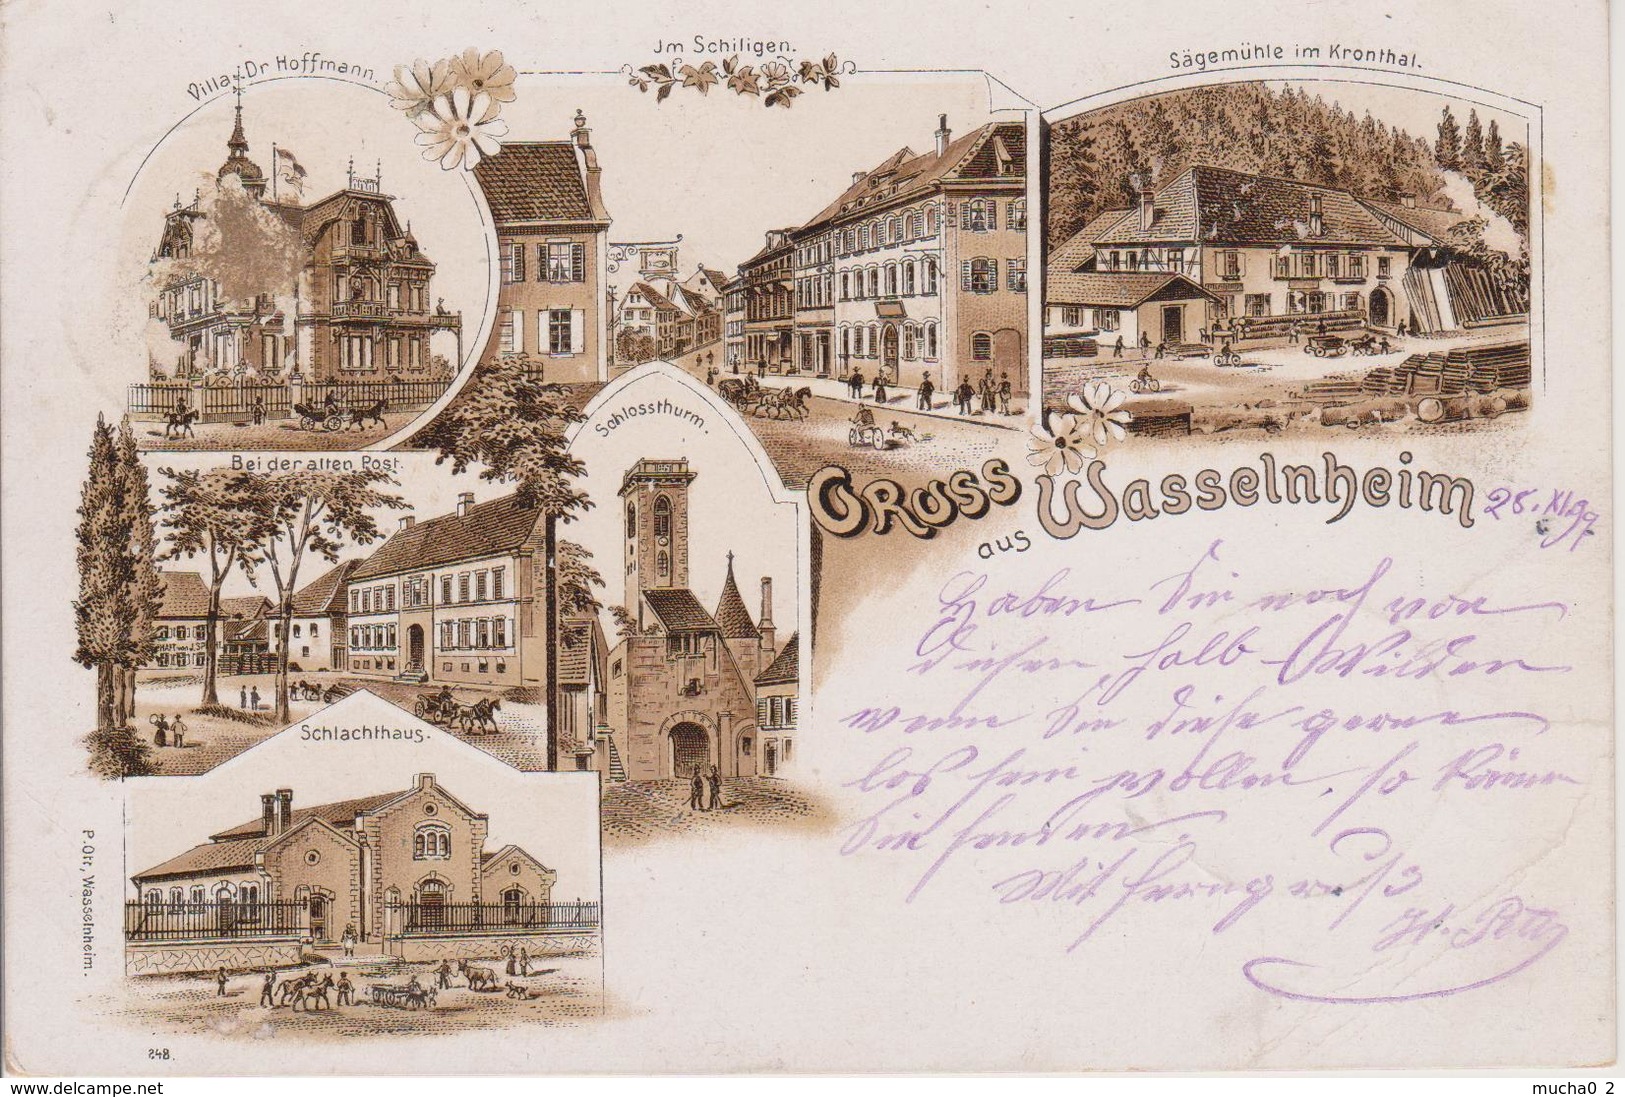 Villa Dr Hoffmann.
Jm Schiligen.
Sägemühle im Kronthal.
Bei der alten Post.
Schlossthurm.
Gruss
aus Wasselnheim
28. XI. 97
Haben Sie noch von
diesen halb Wilden
wenn Sie diese gerne
los sein wollen, so können
Sie senden.
Mit Herngruß
H.
Schlachthaus.
P. Ott, Wasselnheim.
248.
www.delcampe.net
mucha0 2